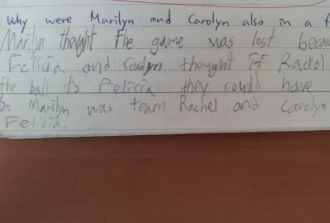 Why were Marilyn and Carolyn also in a f
Marilyn thought the game was lost becau
Felicia and Carolyn thought if Rachel
the ball to Felicia they could have
So Marilyn was team Rachel and Carolyn
Felicia.